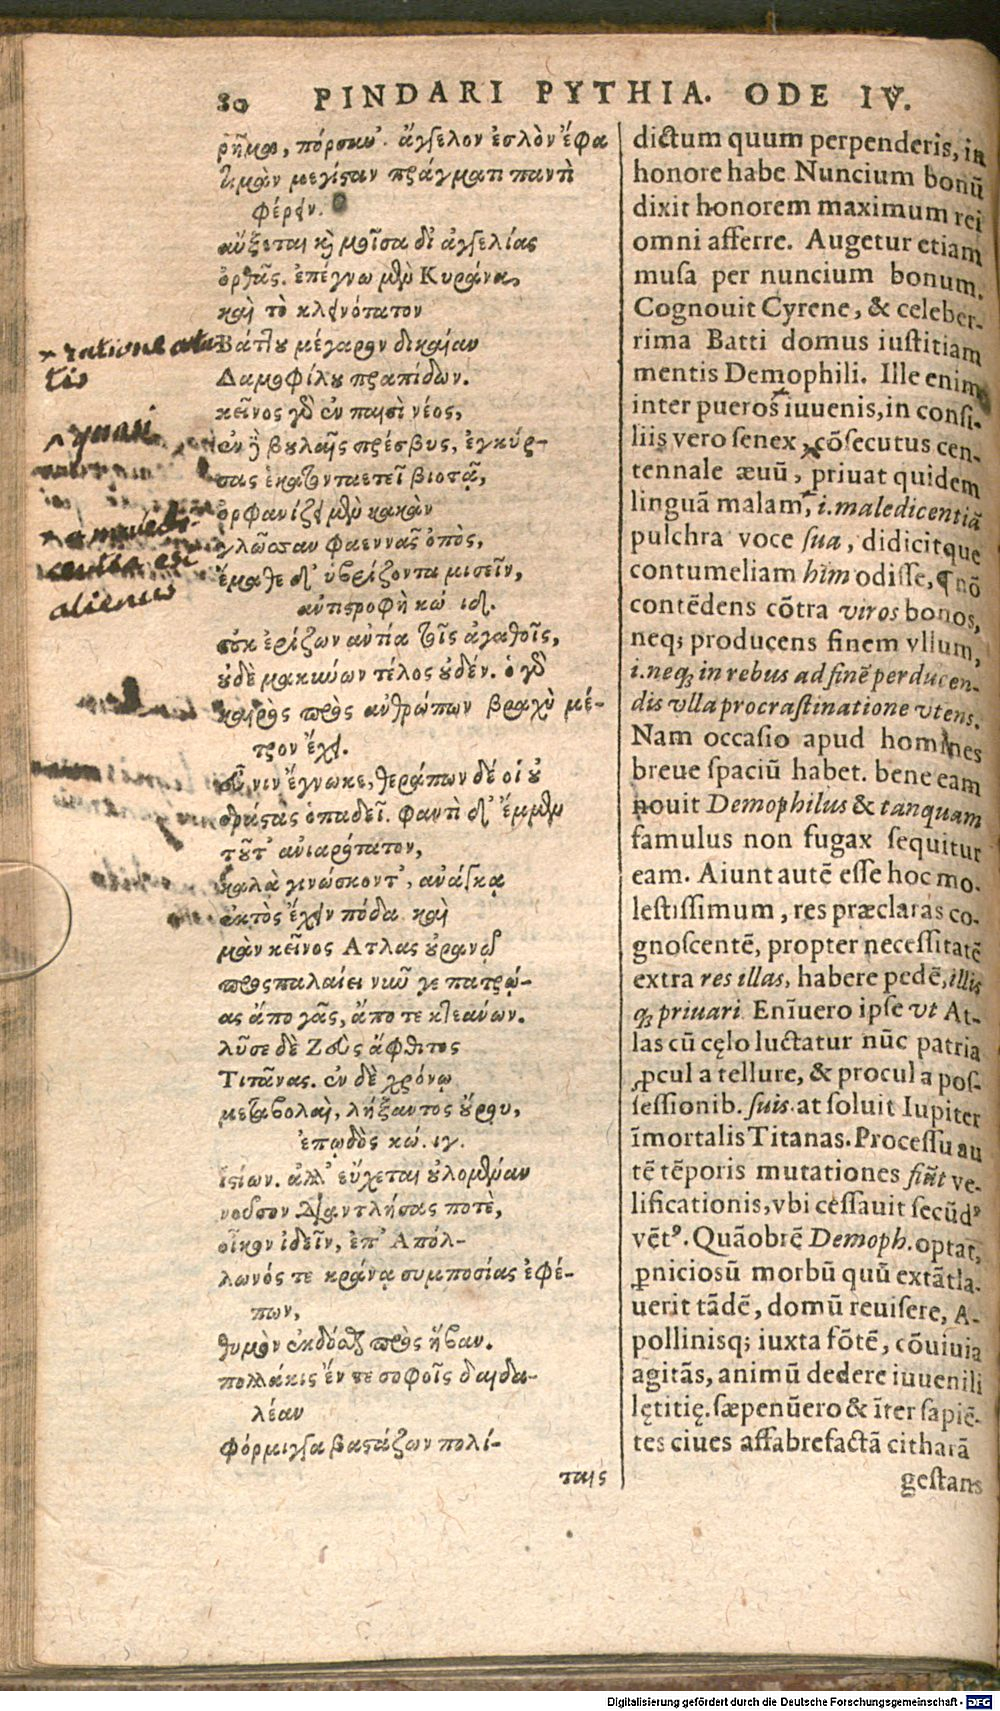 80 PINDARI PYTHIA. ODE IV.
ῥῆμα, πόρσιν'. ἄγγελον ἐσλὸν ἔφα
τιμὰν μεγίσταν πράγματι παντὶ
φέρειν.
αὔξεται καὶ μοῖσα δι' ἀγγελίας
ὀρθᾶς. ἐπέγνω μὲν Κυράνα,
καὶ τὸ κλεινότατον
Βάττου μέγαρον δικαίαν
Δαμοφίλου πραπίδων.
κεῖνος γὰρ ἐν παισὶ νέος,
ἐν δὲ βουλαῖς πρέσβυς, ἐγκύρ-
σας ἑκατονταετεῖ βιοτᾷ,
ὀρφανίζει μὲν κακὰν
γλῶσσαν φαεννᾶς ὀπὸς,
ἔμαθε δ' ὑβρίζοντα μισεῖν,
ἀντιστροφὴ κώ. ιγ.
οὐκ ἐρίζων ἀντία τοῖς ἀγαθοῖς,
οὐδὲ μακύνων τέλος οὐδέν. ὁ γὰρ
καιρὸς πρὸς ἀνθρώπων βραχὺ μέ-
τρον ἔχει.
εὖ νιν ἔγνωκε, θεράπων δέ οἱ οὐ
δράστας ὀπαδεῖ. φαντὶ δ' ἔμμεν
τοῦτ' ἀνιαρότατον,
καλὰ γινώσκοντ', ἀνάγκᾳ
ἐκτὸς ἔχειν πόδα. καὶ
μὰν κεῖνος Ἄτλας οὐρανῷ
προσπαλαίει νῦν γε πατρῴ-
ας ἄπο γᾶς, ἄπο τε κτεάνων.
λῦσε δὲ Ζεὺς ἄφθιτος
Τιτᾶνας. ἐν δὲ χρόνῳ
μεταβολαὶ, λήξαντος οὔρου,
ἐπῳδὸς κώ. ιγ.
ἱστίων. ἀλλ' εὔχεται οὐλομέναν
νοῦσον διαντλήσας ποτὲ,
οἶκον ἰδεῖν, ἐπ' Ἀπόλ-
λωνός τε κράνᾳ συμποσίας ἐφέ-
πων,
θυμὸν ἐκδόσθαι πρὸς ἥβαν.
πολλάκις ἔν τε σοφοῖς δαιδα-
λέαν
φόρμιγγα βαστάζων πολί-
ταις
dictum quum perpenderis, in
honore habe Nuncium bonũ
dixit honorem maximum rei
omni afferre. Augetur etiam
musa per nuncium bonum.
Cognouit Cyrene, & celeber-
rima Batti domus iustitiam
mentis Demophili. Ille enim
inter pueros iuuenis, in consi-
liis vero senex, cõsecutus cen-
tennale æuũ, priuat quidem
linguã malam, i. maledicentiã
pulchra voce sua, didicitque
contumeliam him odisse, nõ
contẽdens cõtra viros bonos,
neq; producens finem vllum,
i. neq; in rebus ad finẽ perducen-
dis vlla procrastinatione vtens.
Nam occasio apud homines
breue spaciũ habet. bene eam
nouit Demophilus & tanquam
famulus non fugax sequitur
eam. Aiunt autẽ esse hoc mo-
lestissimum, res præclaras co-
gnoscentẽ, propter necessitatẽ
extra res illas, habere pedẽ, illis
q; priuari. Enĩuero ipse vt At-
las cũ cęlo luctatur nũc patria
ꝓcul a tellure, & procul a pos-
sessionib. suis. at soluit Iupiter
ĩmortalis Titanas. Processu au
tẽ tẽporis mutationes fiũt ve-
lificationis, vbi cessauit secũdꝰ
vẽtꝰ. Quãobrẽ Demoph. optat,
ꝑniciosũ morbũ quũ extãtla-
uerit tãdẽ, domũ reuisere, A-
pollinisq; iuxta fõtẽ, cõuiuia
agitãs, animũ dedere iuuenili
lętitię. sæpenũero & ĩter sapiẽ-
tes ciues affabrefactã citharã
gestans
Digitalisierung gefördert durch die Deutsche Forschungsgemeinschaft - DFG